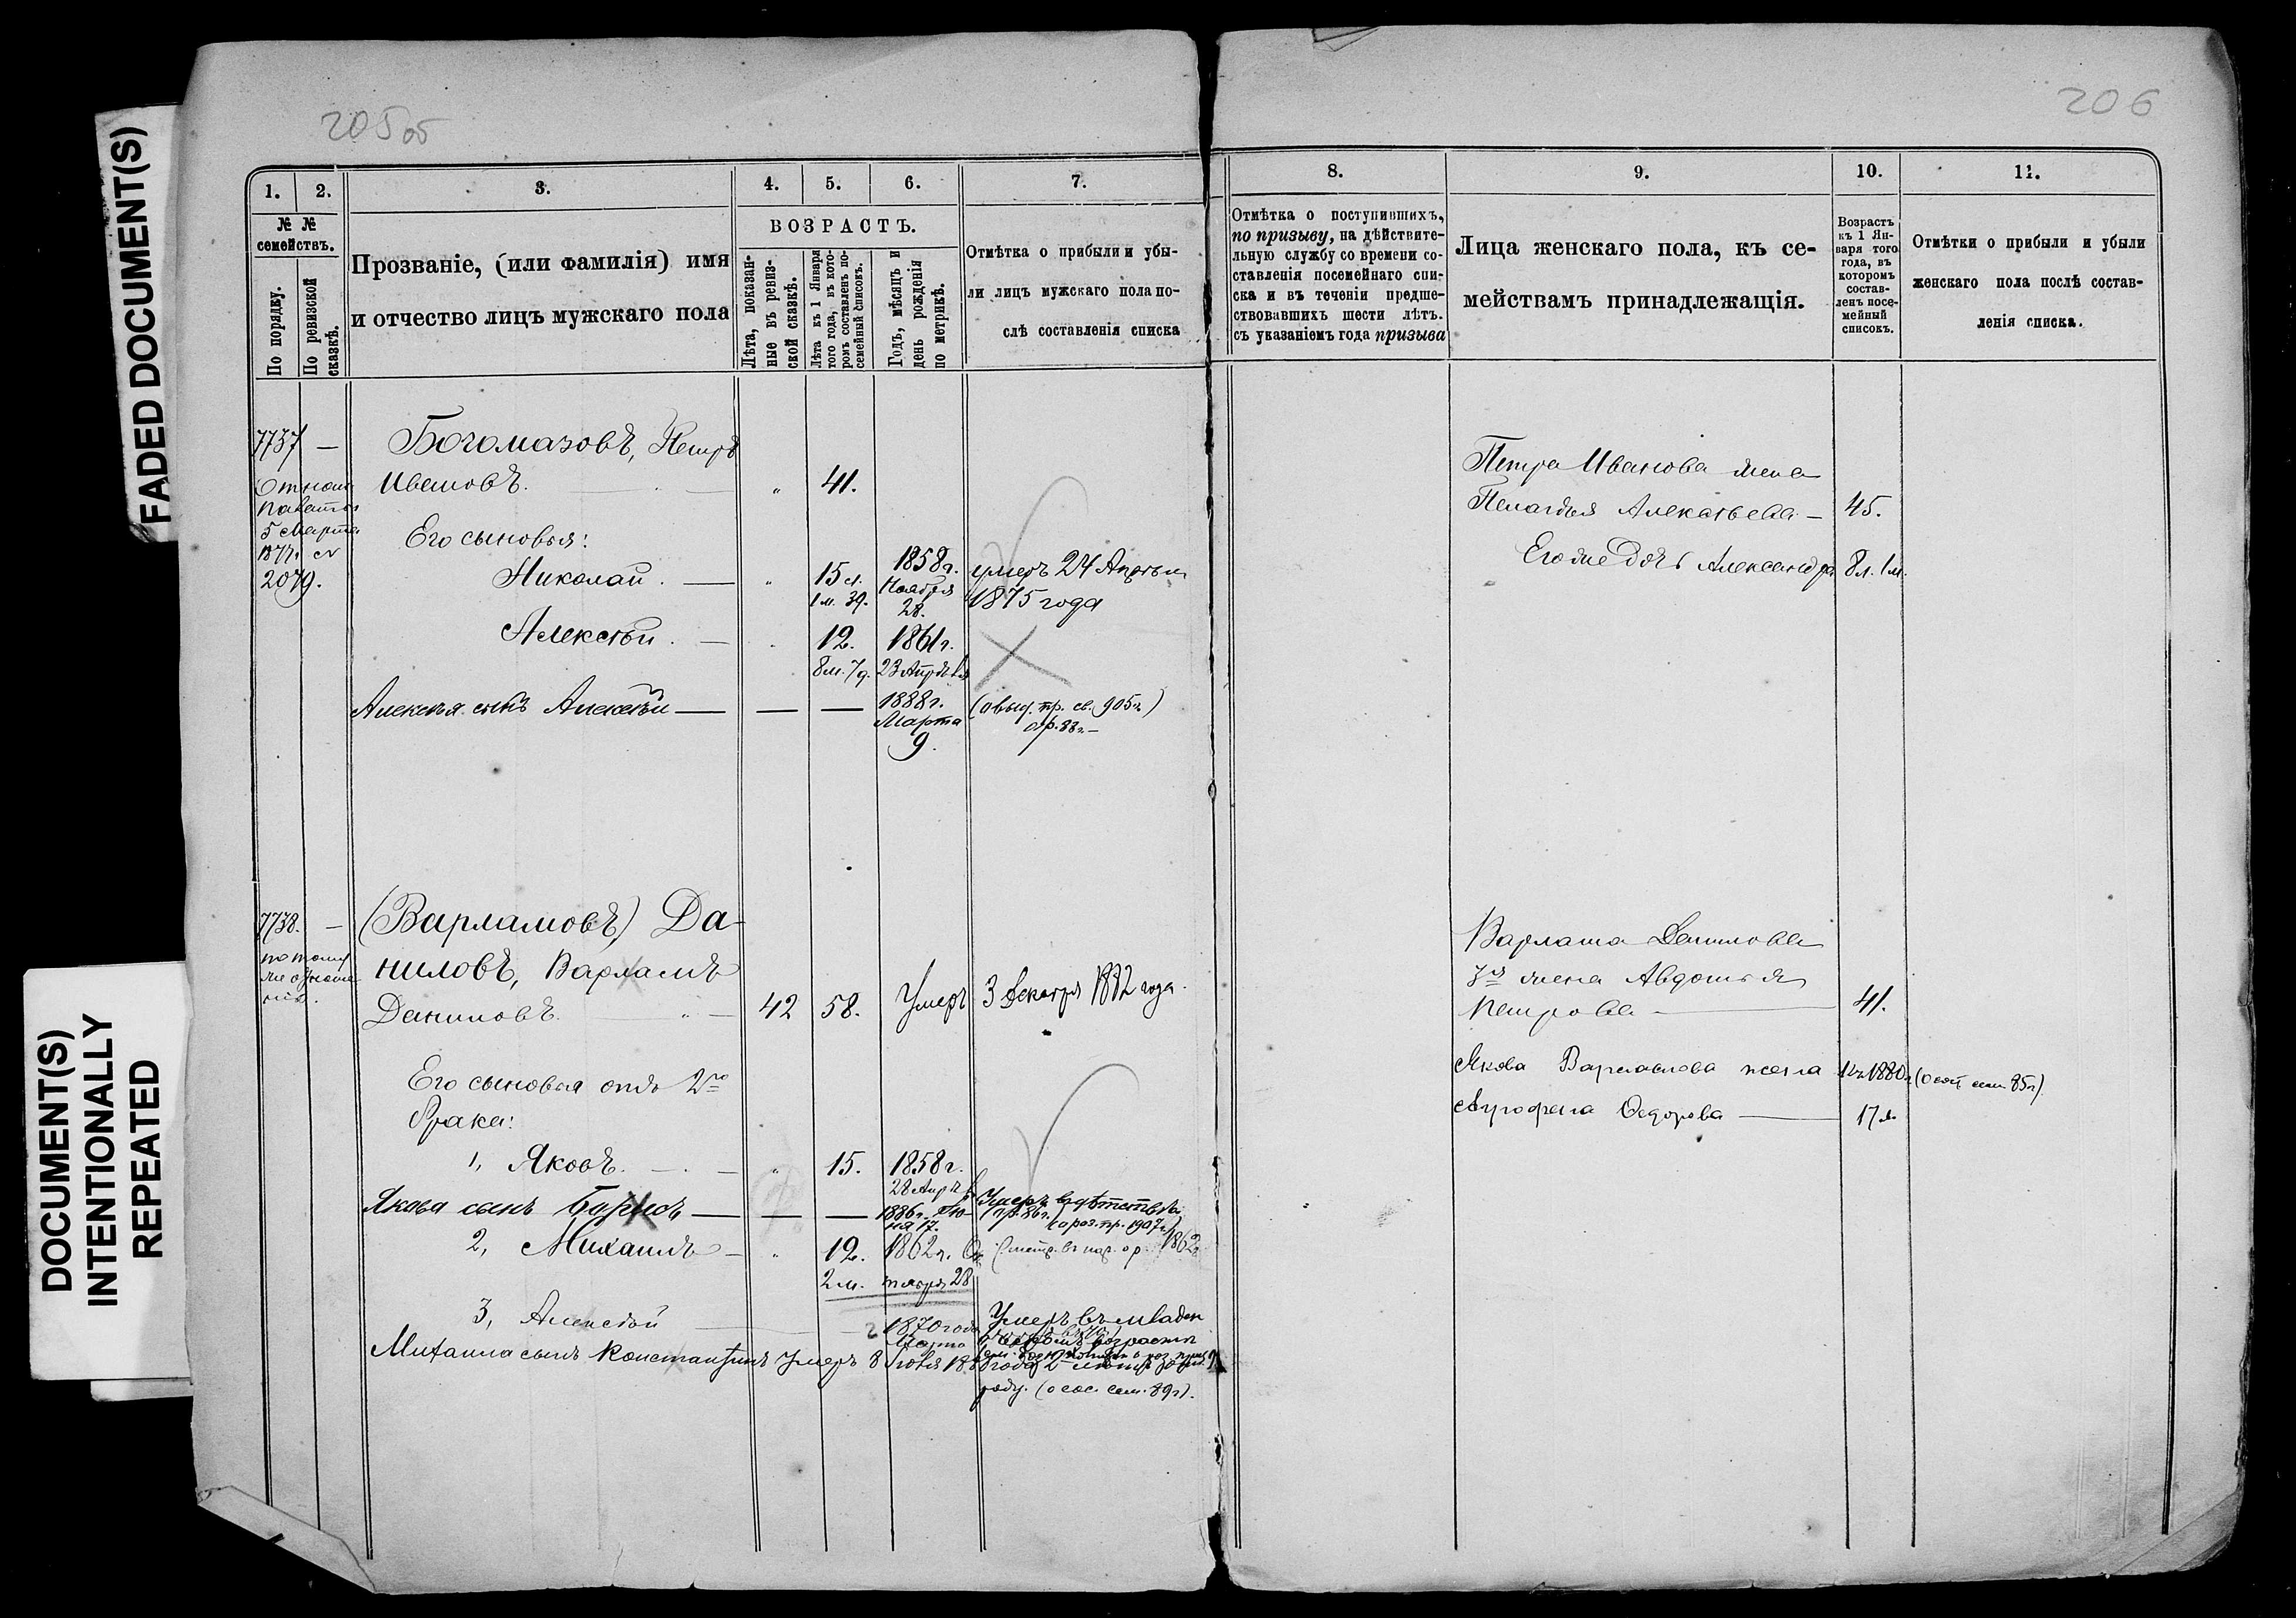 FADED DOCUMENT(S)
DOCUMENT(S)
INTENTIONALLY
REPEATED
205 об
206
1.
2.
3.
4.
5.
6.
7.
№ №
семействъ.
По порядку.
По ревизской
сказкѣ.
Прозваніе, (или фамилія) имя
и отчество лицъ мужскаго пола
ВОЗРАСТЪ.
Лѣта, показан-
ные въ ревиз-
ской сказкѣ.
Лѣта къ 1 Января
того года, въ кото-
ромъ составленъ по-
семейный списокъ.
Годъ, мѣсяцъ и
день рожденія
по метрикѣ.
Отмѣтка о прибыли и убы-
ли лицъ мужскаго пола по-
слѣ составленія списка
7737 —
Богомазовъ, Петръ
Ивановъ. — " 41.
5 Марта
1877г. №
2079.
Его сыновья:
Николай. — " 15 л.
1 м. 3д.
1858г.
Ноября
28.
умеръ 24 Апрѣля
1875 года
Алексѣй. — 12.
8м. 7д.
1861г.
23 Апрѣля
Алексѣя сынъ Алексѣй — — —
1888г.
Марта
9.
905г.)
7738. —
(Варламовъ) Да-
ниловъ, Варламъ
Даниловъ. " — 42 58. Умеръ 3 Декабря 1882 года.
Его сыновья отъ 2го
брака:
1, Яковъ. — " 15. 1858г.
28 Апрѣ
Якова сынъ Борисъ — — —
1886г. Ію-
ня 17.
Умеръ въ дѣтствѣ
1907г.)
2, Михаилъ — " 12.
2 м.
1862г. Ок
тября 28
1862
3, Алексѣй —
1870 года
Марта
Умеръ въ младен
возрастѣ
Михаила сынъ Константинъ умеръ 8
(о сос. сем. 89г).
8.
9.
10.
11.
Отмѣтка о поступившихъ,
по призыву, на дѣйствите-
льную службу со времени со-
ставленія посемейнаго спи-
ска и въ теченіи предше-
ствовавшихъ шести лѣтъ.
съ указаніемъ года призыва
Лица женскаго пола, къ се-
мействамъ принадлежащія.
Возрастъ
къ 1 Ян-
варя того
года, въ
которомъ
состав-
ленъ посе-
мейный
списокъ.
Отмѣтки о прибыли и убыли
женскаго пола послѣ состав-
ленія списка.
Петра Иванова жена
Пелагѣя Алексѣева — 45.
Его же дочь Александра 8л. 1м.
Варлама Данилова
3я жена Авдотья
Петрова — 41.
Якова Варламова жена 1880г (о сост. сем 85г).
Агрофена Федорова — 17 л.